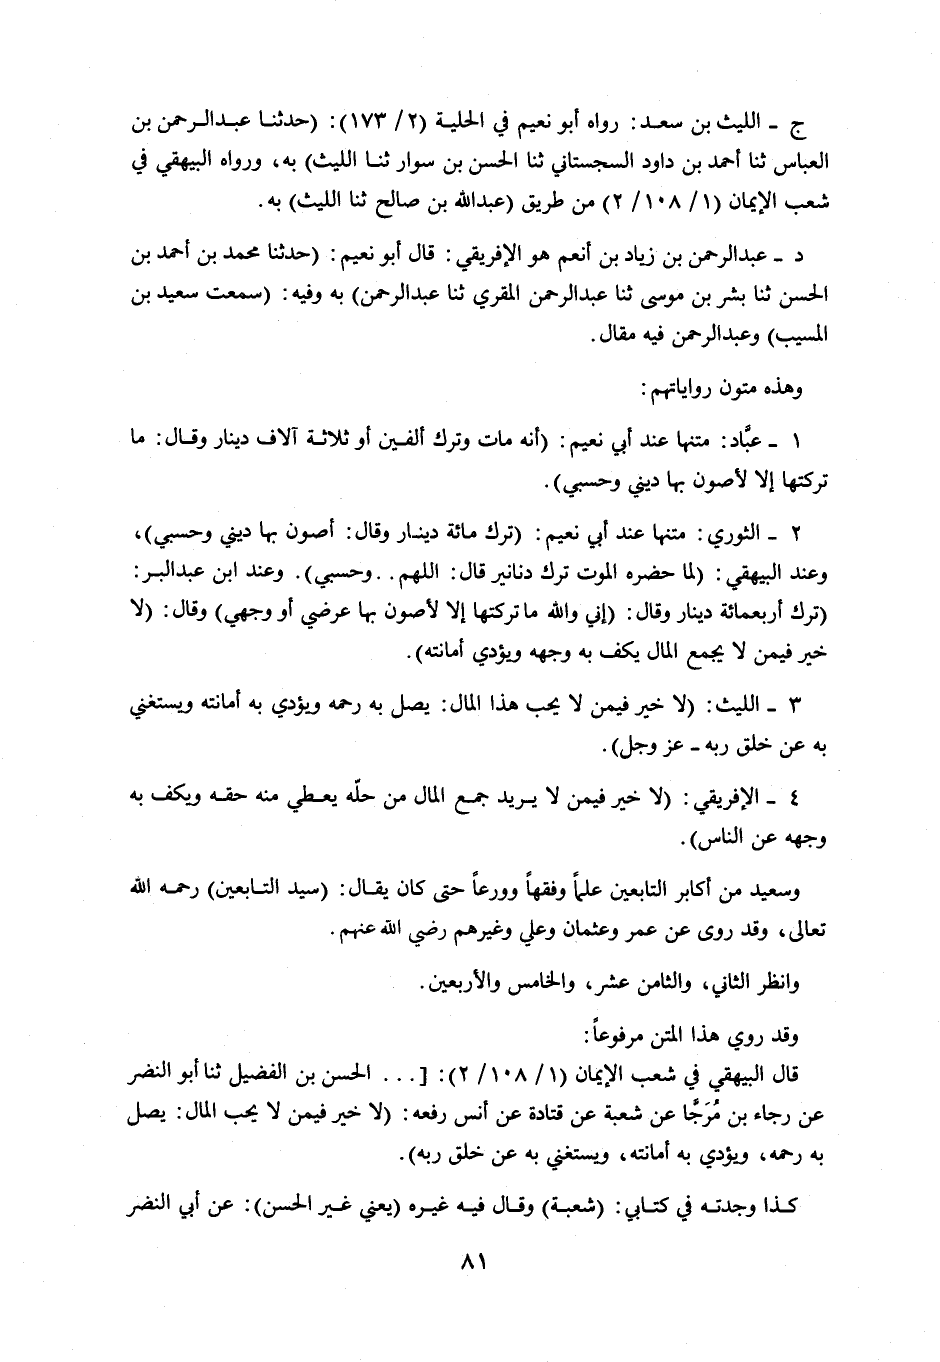 ج ـ الليث بن سعد: رواه أبو نعيم في الحلية (٢/ ١٧٣): (حدثنا عبدالرحمن بن
العباس ثنا أحمد بن داود السجستاني ثنا الحسن بن سوار ثنا الليث) به، ورواه البيهقي في
شعب الإيمان (١/ ١٠٨/ ٢) من طريق (عبدالله بن صالح ثنا الليث) به.
د ـ عبدالرحمن بن زياد بن أنعم هو الإفريقي: قال أبو نعيم: (حدثنا محمد بن أحمد بن
الحسن ثنا بشر بن موسى ثنا عبدالرحمن المقري ثنا عبدالرحمن) به وفيه: (سمعت سعيد بن
المسيب) وعبدالرحمن فيه مقال.
وهذه متون رواياتهم:
١ ـ عبَّاد: متنها عند أبي نعيم: (أنه مات وترك ألفين أو ثلاثة آلاف دينار وقال: ما
تركتها إلا لأصون بها ديني وحسبي).
٢ ـ الثوري: متنها عند أبي نعيم: (ترك مائة دينار وقال: أصون بها ديني وحسبي)،
وعند البيهقي: (لما حضره الموت ترك دنانير قال: اللهم . . وحسبي). وعند ابن عبدالبر:
(ترك أربعمائة دينار وقال: (إني والله ما تركتها إلا لأصون بها عرضي أو وجهي) وقال: (لا
خير فيمن لا يجمع المال يكف به وجهه ويؤدي أمانته).
٣ ـ الليث: (لا خير فيمن لا يحب هذا المال: يصل به رحمه ويؤدي به أمانته ويستغني
به عن خلق ربه ـ عز وجل).
٤ ـ الإفريقي: (لا خير فيمن لا يريد جمع المال من حلّه يعطي منه حقه ويكف به
وجهه عن الناس).
وسعيد من أكابر التابعين علماً وفقهاً وورعاً حتى كان يقال: (سيد التابعين) رحمه الله
تعالى، وقد روى عن عمر وعثمان وعلي وغيرهم رضي الله عنهم.
وانظر الثاني، والثامن عشر، والخامس والأربعين.
وقد روي هذا المتن مرفوعاً:
قال البيهقي في شعب الإيمان (١/ ١٠٨/ ٢): [. . . الحسن بن الفضيل ثنا أبو النضر
عن رجاء بن مُرَجَّا عن شعبة عن قتادة عن أنس رفعه: (لا خير فيمن لا يحب المال: يصل
به رحمه، ويؤدي به أمانته، ويستغني به عن خلق ربه).
كذا وجدته في كتابي: (شعبة) وقال فيه غيره (يعني غير الحسن): عن أبي النضر
٨١